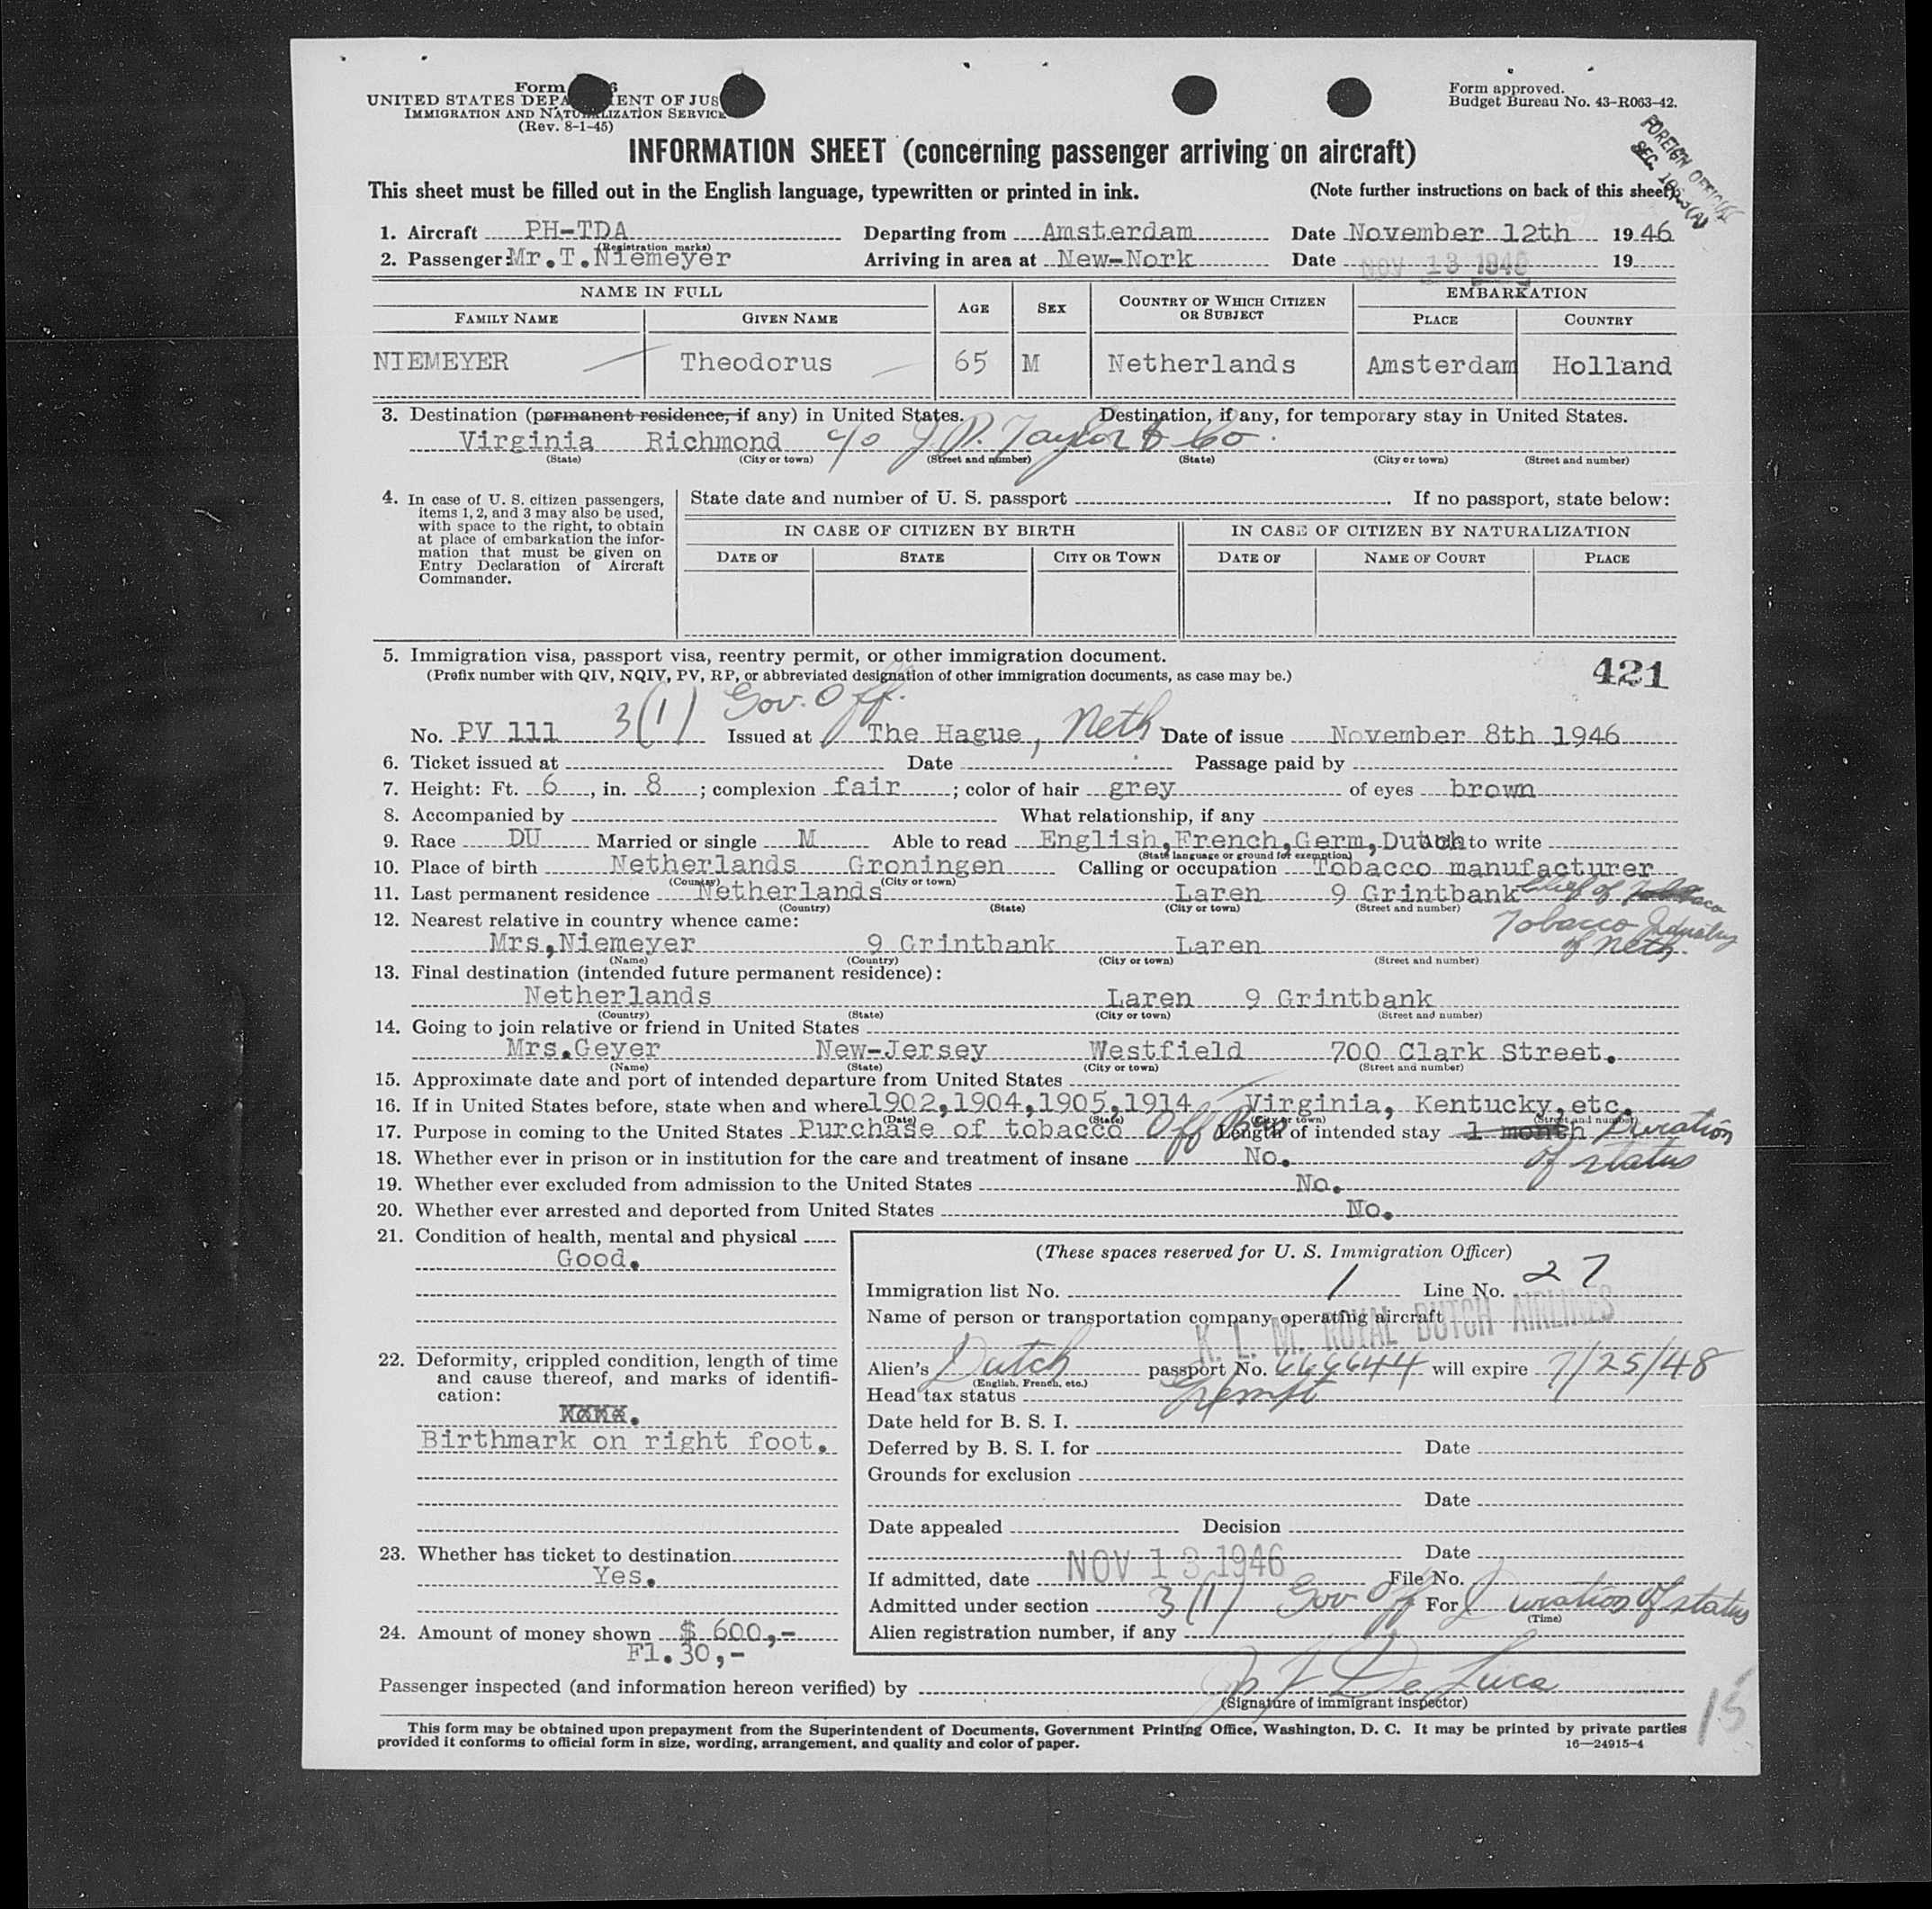 Form 6
UNITED STATES DEPA ENT OF JUS
IMMIGRATION AND NATURALIZATION SERVICE
(Rev. 8-1-45)
Form approved.
Budget Bureau No. 43-R063-42.
FOREIGN OFFICIAL
SEC.
INFORMATION SHEET (concerning passenger arriving on aircraft)
This sheet must be filled out in the English language, typewritten or printed in ink. (Note further instructions on back of this sheet)
1. Aircraft PH-TDA Departing from Amsterdam Date November 12th 19 46
(Registration marks)
2. Passenger: Mr.T.Niemeyer Arriving in area at New-Nork Date NOV 13 1946 19
NAME IN FULL AGE SEX COUNTRY OF WHICH CITIZEN OR SUBJECT EMBARKATION
FAMILY NAME GIVEN NAME PLACE COUNTRY
NIEMEYER Theodorus 65 M Netherlands Amsterdam Holland
3. Destination (permanent residence, if any) in United States. Destination, if any, for temporary stay in United States.
Virginia Richmond c/o J.P. Taylor & Co.
(State) (City or town) (Street and number) (State) (City or town) (Street and number)
4. In case of U. S. citizen passengers, items 1, 2, and 3 may also be used, with space to the right, to obtain at place of embarkation the information that must be given on Entry Declaration of Aircraft Commander.
State date and number of U. S. passport . If no passport, state below:
IN CASE OF CITIZEN BY BIRTH IN CASE OF CITIZEN BY NATURALIZATION
DATE OF STATE CITY OR TOWN DATE OF NAME OF COURT PLACE
5. Immigration visa, passport visa, reentry permit, or other immigration document. 421
(Prefix number with QIV, NQIV, PV, RP, or abbreviated designation of other immigration documents, as case may be.)
3(1) Gov. Off.
No. PV 111 Issued at The Hague, Neth Date of issue November 8th 1946
6. Ticket issued at Date Passage paid by
7. Height: Ft. 6, in. 8; complexion fair; color of hair grey of eyes brown
8. Accompanied by What relationship, if any
9. Race DU Married or single M Able to read English,French,Germ,Dutch to write
(State language or ground for exemption)
10. Place of birth Netherlands Groningen Calling or occupation Tobacco manufacturer
(Country) (City or town)
11. Last permanent residence Netherlands Laren 9 Grintbank Chief of Tobacco
(Country) (State) (City or town) (Street and number)
Tobacco Industry of Neth
12. Nearest relative in country whence came:
Mrs,Niemeyer 9 Grintbank Laren
(Name) (Country) (City or town) (Street and number)
13. Final destination (intended future permanent residence):
Netherlands Laren 9 Grintbank
(Country) (State) (City or town) (Street and number)
14. Going to join relative or friend in United States
Mrs.Geyer New-Jersey Westfield 700 Clark Street.
(Name) (State) (City or town) (Street and number)
15. Approximate date and port of intended departure from United States
16. If in United States before, state when and where 1902,1904,1905,1914 Virginia, Kentucky,etc.
(Date) (State) (City or town) (Street and number)
17. Purpose in coming to the United States Purchase of tobacco Off Bus Length of intended stay 1 month Duration of status
18. Whether ever in prison or in institution for the care and treatment of insane No.
19. Whether ever excluded from admission to the United States No.
20. Whether ever arrested and deported from United States No.
21. Condition of health, mental and physical
Good.
22. Deformity, crippled condition, length of time and cause thereof, and marks of identification:
Birthmark on right foot.
23. Whether has ticket to destination
Yes.
24. Amount of money shown $ 600,-
Fl.30,-
(These spaces reserved for U. S. Immigration Officer)
Immigration list No. 1 Line No. 27
Name of person or transportation company operating aircraft
K. L. M. ROYAL DUTCH AIRLINES
Alien's Dutch passport No. 666644 will expire 7/25/48
(English, French, etc.)
Head tax status Exempt
Date held for B. S. I.
Deferred by B. S. I. for Date
Grounds for exclusion
Date
Date appealed Decision
Date
If admitted, date NOV 13 1946 File No.
Admitted under section 3(1) Gov Off For Duration of status
(Time)
Alien registration number, if any
Passenger inspected (and information hereon verified) by De Luca
(Signature of immigrant inspector)
15
This form may be obtained upon prepayment from the Superintendent of Documents, Government Printing Office, Washington, D. C. It may be printed by private parties
provided it conforms to official form in size, wording, arrangement, and quality and color of paper. 16—24915-4